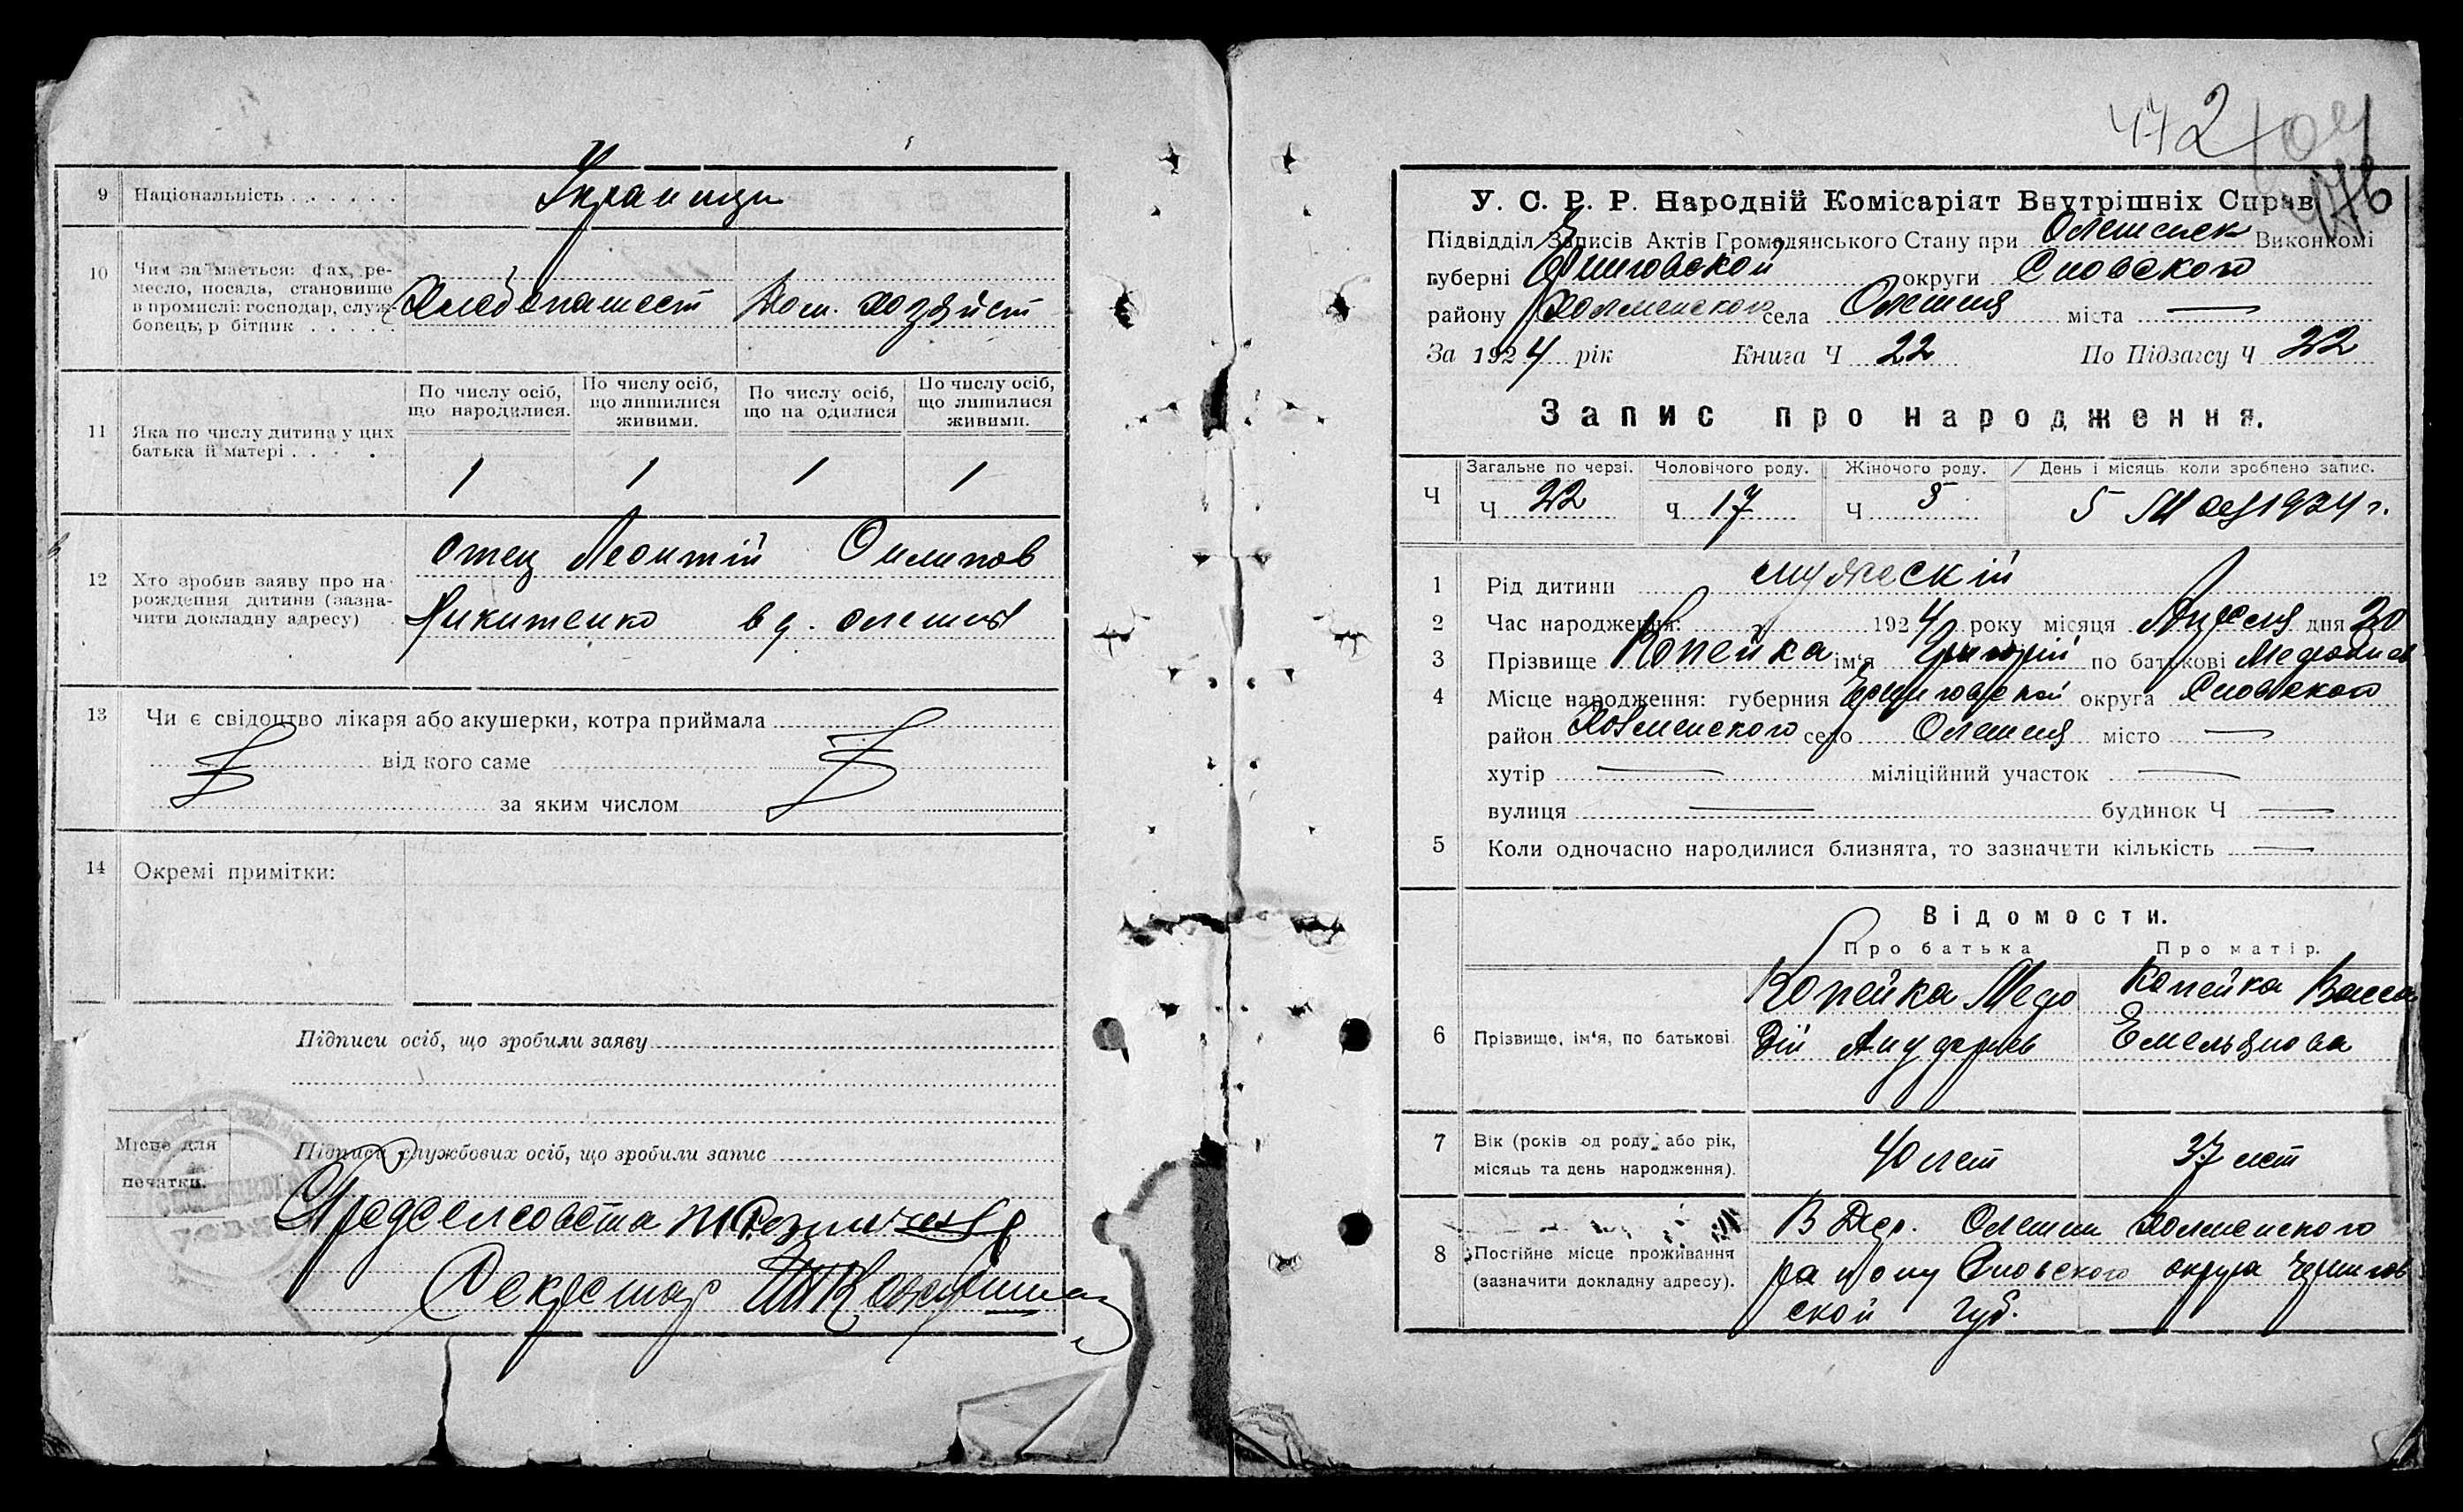 9 Національність . . . . . . Українцы
10 Чим займається: фах, ре-
месло, посада, становище
в промислі: господар, служ-
бовець, робітник . . . . .
Хлебопашест Дом. хозяйст
11 Яка по числу дитина у цих
батька й матері . . . .
По числу осіб, що народилися. По числу осіб, що лишилися живими. По числу осіб, що народилися По числу осіб, що лишилися живими.
1 1 1 1
12 Хто зробив заяву про на-
рождення дитини (зазна-
чити докладну адресу)
отец Леонтій Филипов
Никитенко в д. Олешня
13 Чи є свідоцтво лікаря або акушерки, котра приймала
від кого саме
за яким числом
14 Окремі примітки:
Підписи осіб, що зробили заяву
Місце для
печатки.
Підписи службових осіб, що зробили запис
Предселсовета
Секретар
472
476
У. С. Р. Р. Народній Комісаріят Внутрішніх Справ
Підвідділ Записів Актів Громадянського Стану при Олешнек Виконкомі
губерні Черниговской округи Сновского
району Холменского села Олешня міста —
За 1924 рік Книга Ч 22 По Підзагсу Ч 22
Запис про народження.
Загальне по черзі. Чоловічого роду. Жіночого роду. День і місяць коли зроблено запис.
Ч Ч 22 Ч 17 Ч 5 5 Мая 1924 г.
1 Рід дитини мужескій
2 Час народження: 1924 року місяця Апреля дня 20
3 Прізвище Копейка ім'я Григорій по батькові Мефодиев
4 Місце народження: губерния Черниговской округа Сновского
район Холменского село Олешня місто —
хутір — міліційний участок —
вулиця — будинок Ч —
5 Коли одночасно народилися близнята, то зазначити кількість —
Відомости.
Про батька Про матір.
6 Прізвище, ім'я, по батькові
Копейка Мефо Копейка Васса
дій Емельянова
7 Вік (років од роду або рік,
місяць та день народження).
40 лет 37 лет
8 Постійне місце проживання
(зазначити докладну адресу).
В Дер. Олешни Холменского
району Сновского округа Чернигов
ской губ.